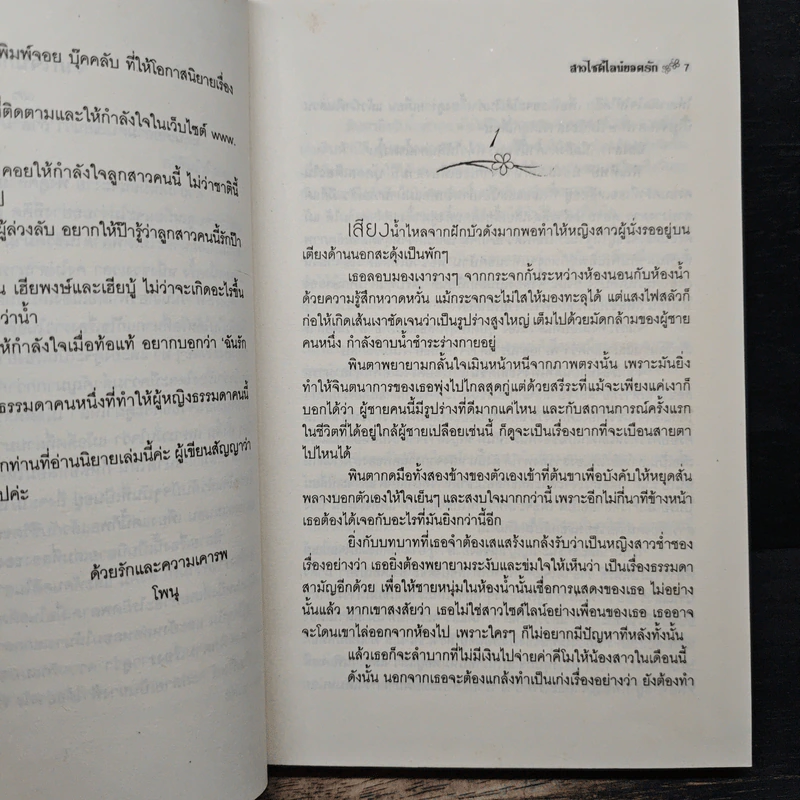 พิมพ์จอย บุ๊คคลับ ที่ให้โอกาสนิยายเรื่อง
ที่ติดตามและให้กำลังใจในเว็บไซต์ www.
คอยให้กำลังใจลูกสาวคนนี้ ไม่ว่าชาตินี้
ป
ผู้ล่วงลับ อยากให้ป๊ารู้ว่าลูกสาวคนนี้รักป๊า
เฮียพงษ์และเฮียบู้ ไม่ว่าจะเกิดอะไรขึ้น
ว่าน้ำ
ให้กำลังใจเมื่อท้อแท้ อยากบอกว่า 'ฉันรัก
ธรรมดาคนหนึ่งที่ทำให้ผู้หญิงธรรมดาคนนี้
กท่านที่อ่านนิยายเล่มนี้ค่ะ ผู้เขียนสัญญาว่า
ปค่ะ
ด้วยรักและความเคารพ
โพนุ
สาวไซด์ไลน์ยอดรัก 7
1
เสียงน้ำไหลจากฝักบัวดังมากพอทำให้หญิงสาวผู้นั่งรออยู่บน
เตียงด้านนอกสะดุ้งเป็นพักๆ
เธอลอบมองเงารางๆ จากกระจกกั้นระหว่างห้องนอนกับห้องน้ำ
ด้วยความรู้สึกหวาดหวั่น แม้กระจกจะไม่ใสให้มองทะลุได้ แต่แสงไฟสลัวก็
ก่อให้เกิดเส้นเงาชัดเจนว่าเป็นรูปร่างสูงใหญ่ เต็มไปด้วยมัดกล้ามของผู้ชาย
คนหนึ่ง กำลังอาบน้ำชำระร่างกายอยู่
พินตาพยายามกลั้นใจเมินหน้าหนีจากภาพตรงนั้น เพราะมันยิ่ง
ทำให้จินตนาการของเธอพุ่งไปไกลสุดกู่แต่ด้วยสรีระที่แม้จะเพียงแค่เงาก็
บอกได้ว่า ผู้ชายคนนี้มีรูปร่างที่ดีมากแค่ไหน และกับสถานการณ์ครั้งแรก
ในชีวิตที่ได้อยู่ใกล้ผู้ชายเปลือยเช่นนี้ ก็ดูจะเป็นเรื่องยากที่จะเบือนสายตา
ไปไหนได้
พินตากดมือทั้งสองข้างของตัวเองเข้าที่ต้นขาเพื่อบังคับให้หยุดสั่น
พลางบอกตัวเองให้ใจเย็นๆ และสงบใจมากกว่านี้ เพราะอีกไม่กี่นาทีข้างหน้า
เธอต้องได้เจอกับอะไรที่มันยิ่งกว่านี้อีก
ยิ่งกับบทบาทที่เธอจำต้องเสแสร้งแกล้งรับว่าเป็นหญิงสาวช่ำชอง
เรื่องอย่างว่า เธอยิ่งต้องพยายามระงับและข่มใจให้เห็นว่า เป็นเรื่องธรรมดา
สามัญอีกด้วย เพื่อให้ชายหนุ่มในห้องน้ำนั้นเชื่อการแสดงของเธอ ไม่อย่าง
นั้นแล้ว หากเขาสงสัยว่า เธอไม่ใช่สาวไซด์ไลน์อย่างเพื่อนของเธอ เธออาจ
จะโดนเขาไล่ออกจากห้องไป เพราะใครๆ ก็ไม่อยากมีปัญหาทีหลังทั้งนั้น
แล้วเธอก็จะลำบากที่ไม่มีเงินไปจ่ายค่าคีโมให้น้องสาวในเดือนนี้
ดังนั้น นอกจากเธอจะต้องแกล้งทำเป็นเก่งเรื่องอย่างว่า ยังต้องทำ